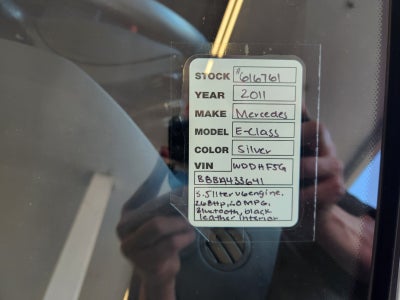 STOCK #616761
YEAR 2011
MAKE Mercedes
MODEL E-Class
COLOR Silver
VIN WDDHF5G
BBBA433641
3.5liter V6 engine,
268hp, 20MPG,
Bluetooth, black
leather interior